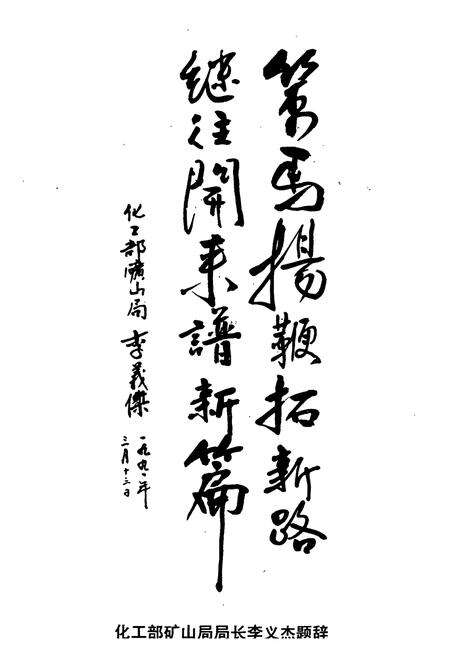 策馬揚鞭拓新路
继往開来譜新篇
化工部矿山局 李義傑
一九九一年
三月十三日
化工部矿山局局长李义杰题辞